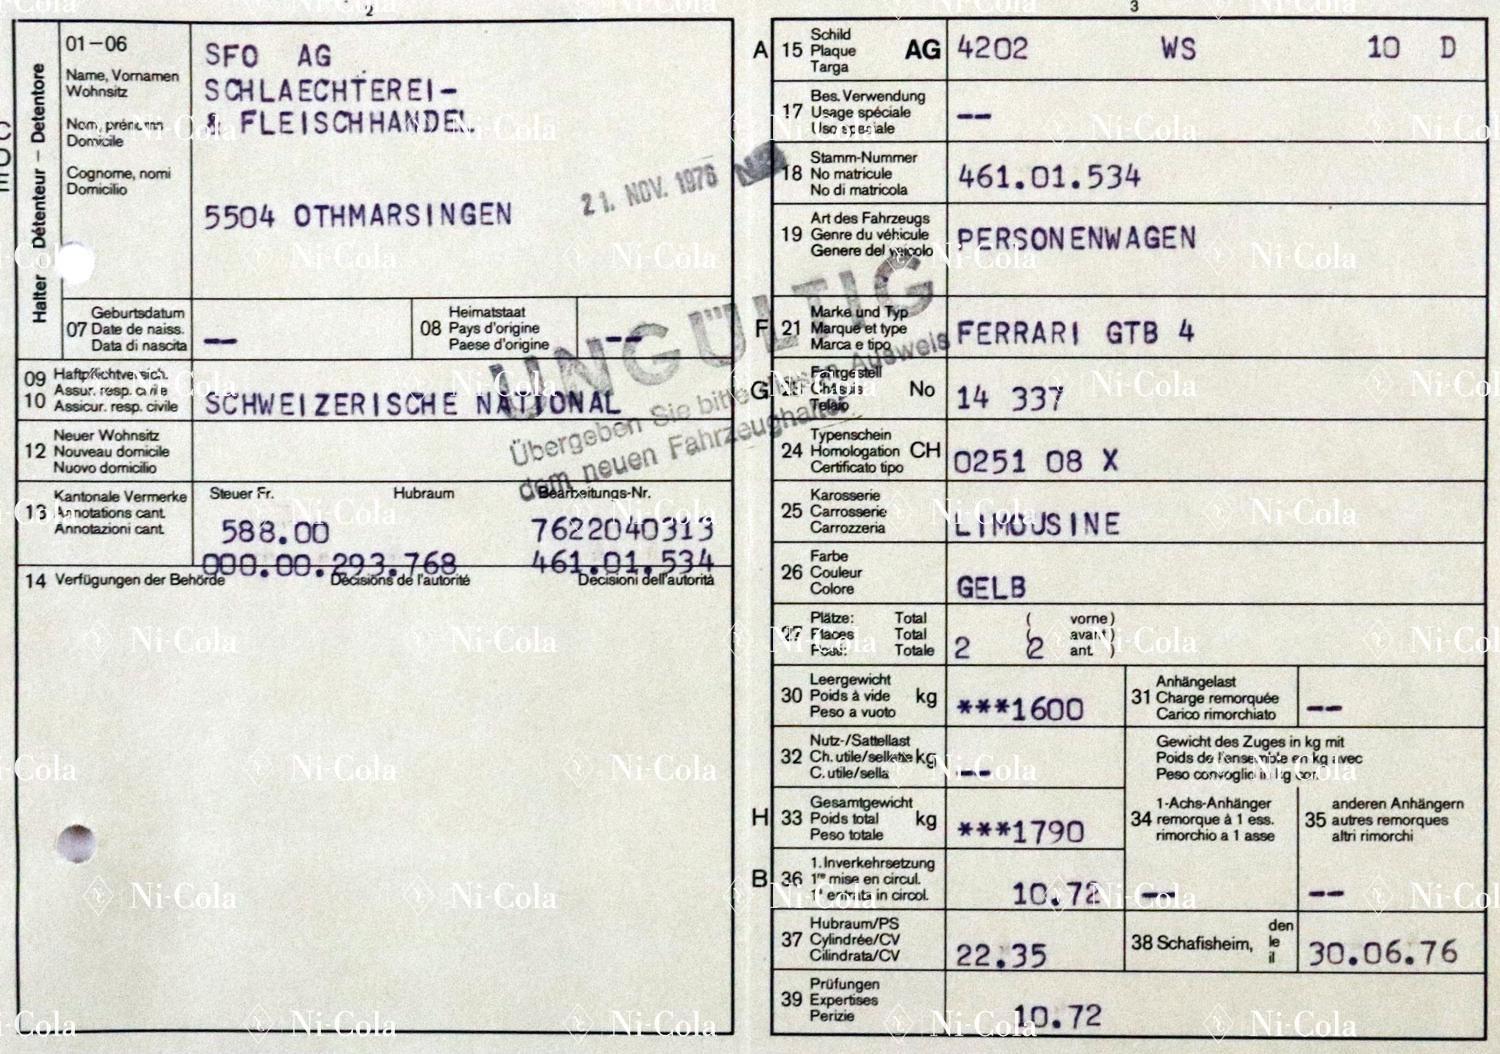 2
Halter – Détenteur – Detentore
01–06
Name, Vornamen
Wohnsitz
Nom, prénoms
Domicile
Cognome, nomi
Domicilio
SFO AG
SCHLAECHTEREI-
& FLEISCHHANDEL
5504 OTHMARSINGEN
21. NOV. 1976
07 Geburtsdatum
Date de naiss.
Data di nascita
--
08 Heimatstaat
Pays d'origine
Paese d'origine
--
UNGÜLTIG
Übergeben Sie bitte Ausweis
dem neuen Fahrzeughalter
09
10
Haftpflichtversich.
Assur. resp. civile
Assicur. resp. civile
SCHWEIZERISCHE NATIONAL
12 Neuer Wohnsitz
Nouveau domicile
Nuovo domicilio
13 Kantonale Vermerke
Annotations cant.
Annotazioni cant.
Steuer Fr. Hubraum Bearbeitungs-Nr.
588.00 7622040313
000.00.293.768 461.01.534
14 Verfügungen der Behörde Décisions de l'autorité Decisioni dell'autorità
3
A 15 Schild
Plaque
Targa
AG 4202 WS 10 D
17 Bes. Verwendung
Usage spéciale
Uso speciale
--
18 Stamm-Nummer
No matricule
No di matricola
461.01.534
19 Art des Fahrzeugs
Genre du véhicule
Genere del veicolo
PERSONENWAGEN
F 21 Marke und Typ
Marque et type
Marca e tipo
FERRARI GTB 4
G 23 Fahrgestell
Châssis
Telaio
No 14 337
24 Typenschein
Homologation
Certificato tipo
CH 0251 08 X
25 Karosserie
Carrosserie
Carrozzeria
LIMOUSINE
26 Farbe
Couleur
Colore
GELB
27 Plätze: Total ( vorne )
Places Total ( avant )
Posti: Totale ( ant. )
2 2
30 Leergewicht
Poids à vide
Peso a vuoto
kg ***1600
31 Anhängelast
Charge remorquée
Carico rimorchiato
--
32 Nutz-/Sattellast
Ch. utile/sellette
C. utile/sella
kg --
Gewicht des Zuges in kg mit
Poids de l'ensemble en kg avec
Peso convoglio in kg con
H 33 Gesamtgewicht
Poids total
Peso totale
kg ***1790
34 1-Achs-Anhänger
remorque à 1 ess.
rimorchio a 1 asse
--
35 anderen Anhängern
autres remorques
altri rimorchi
--
B 36 1. Inverkehrsetzung
1re mise en circul.
1a entrata in circol.
10.72
37 Hubraum/PS
Cylindrée/CV
Cilindrata/CV
22.35
38 Schafisheim, den
le
il
30.06.76
39 Prüfungen
Expertises
Perizie
10.72
Ni-Cola